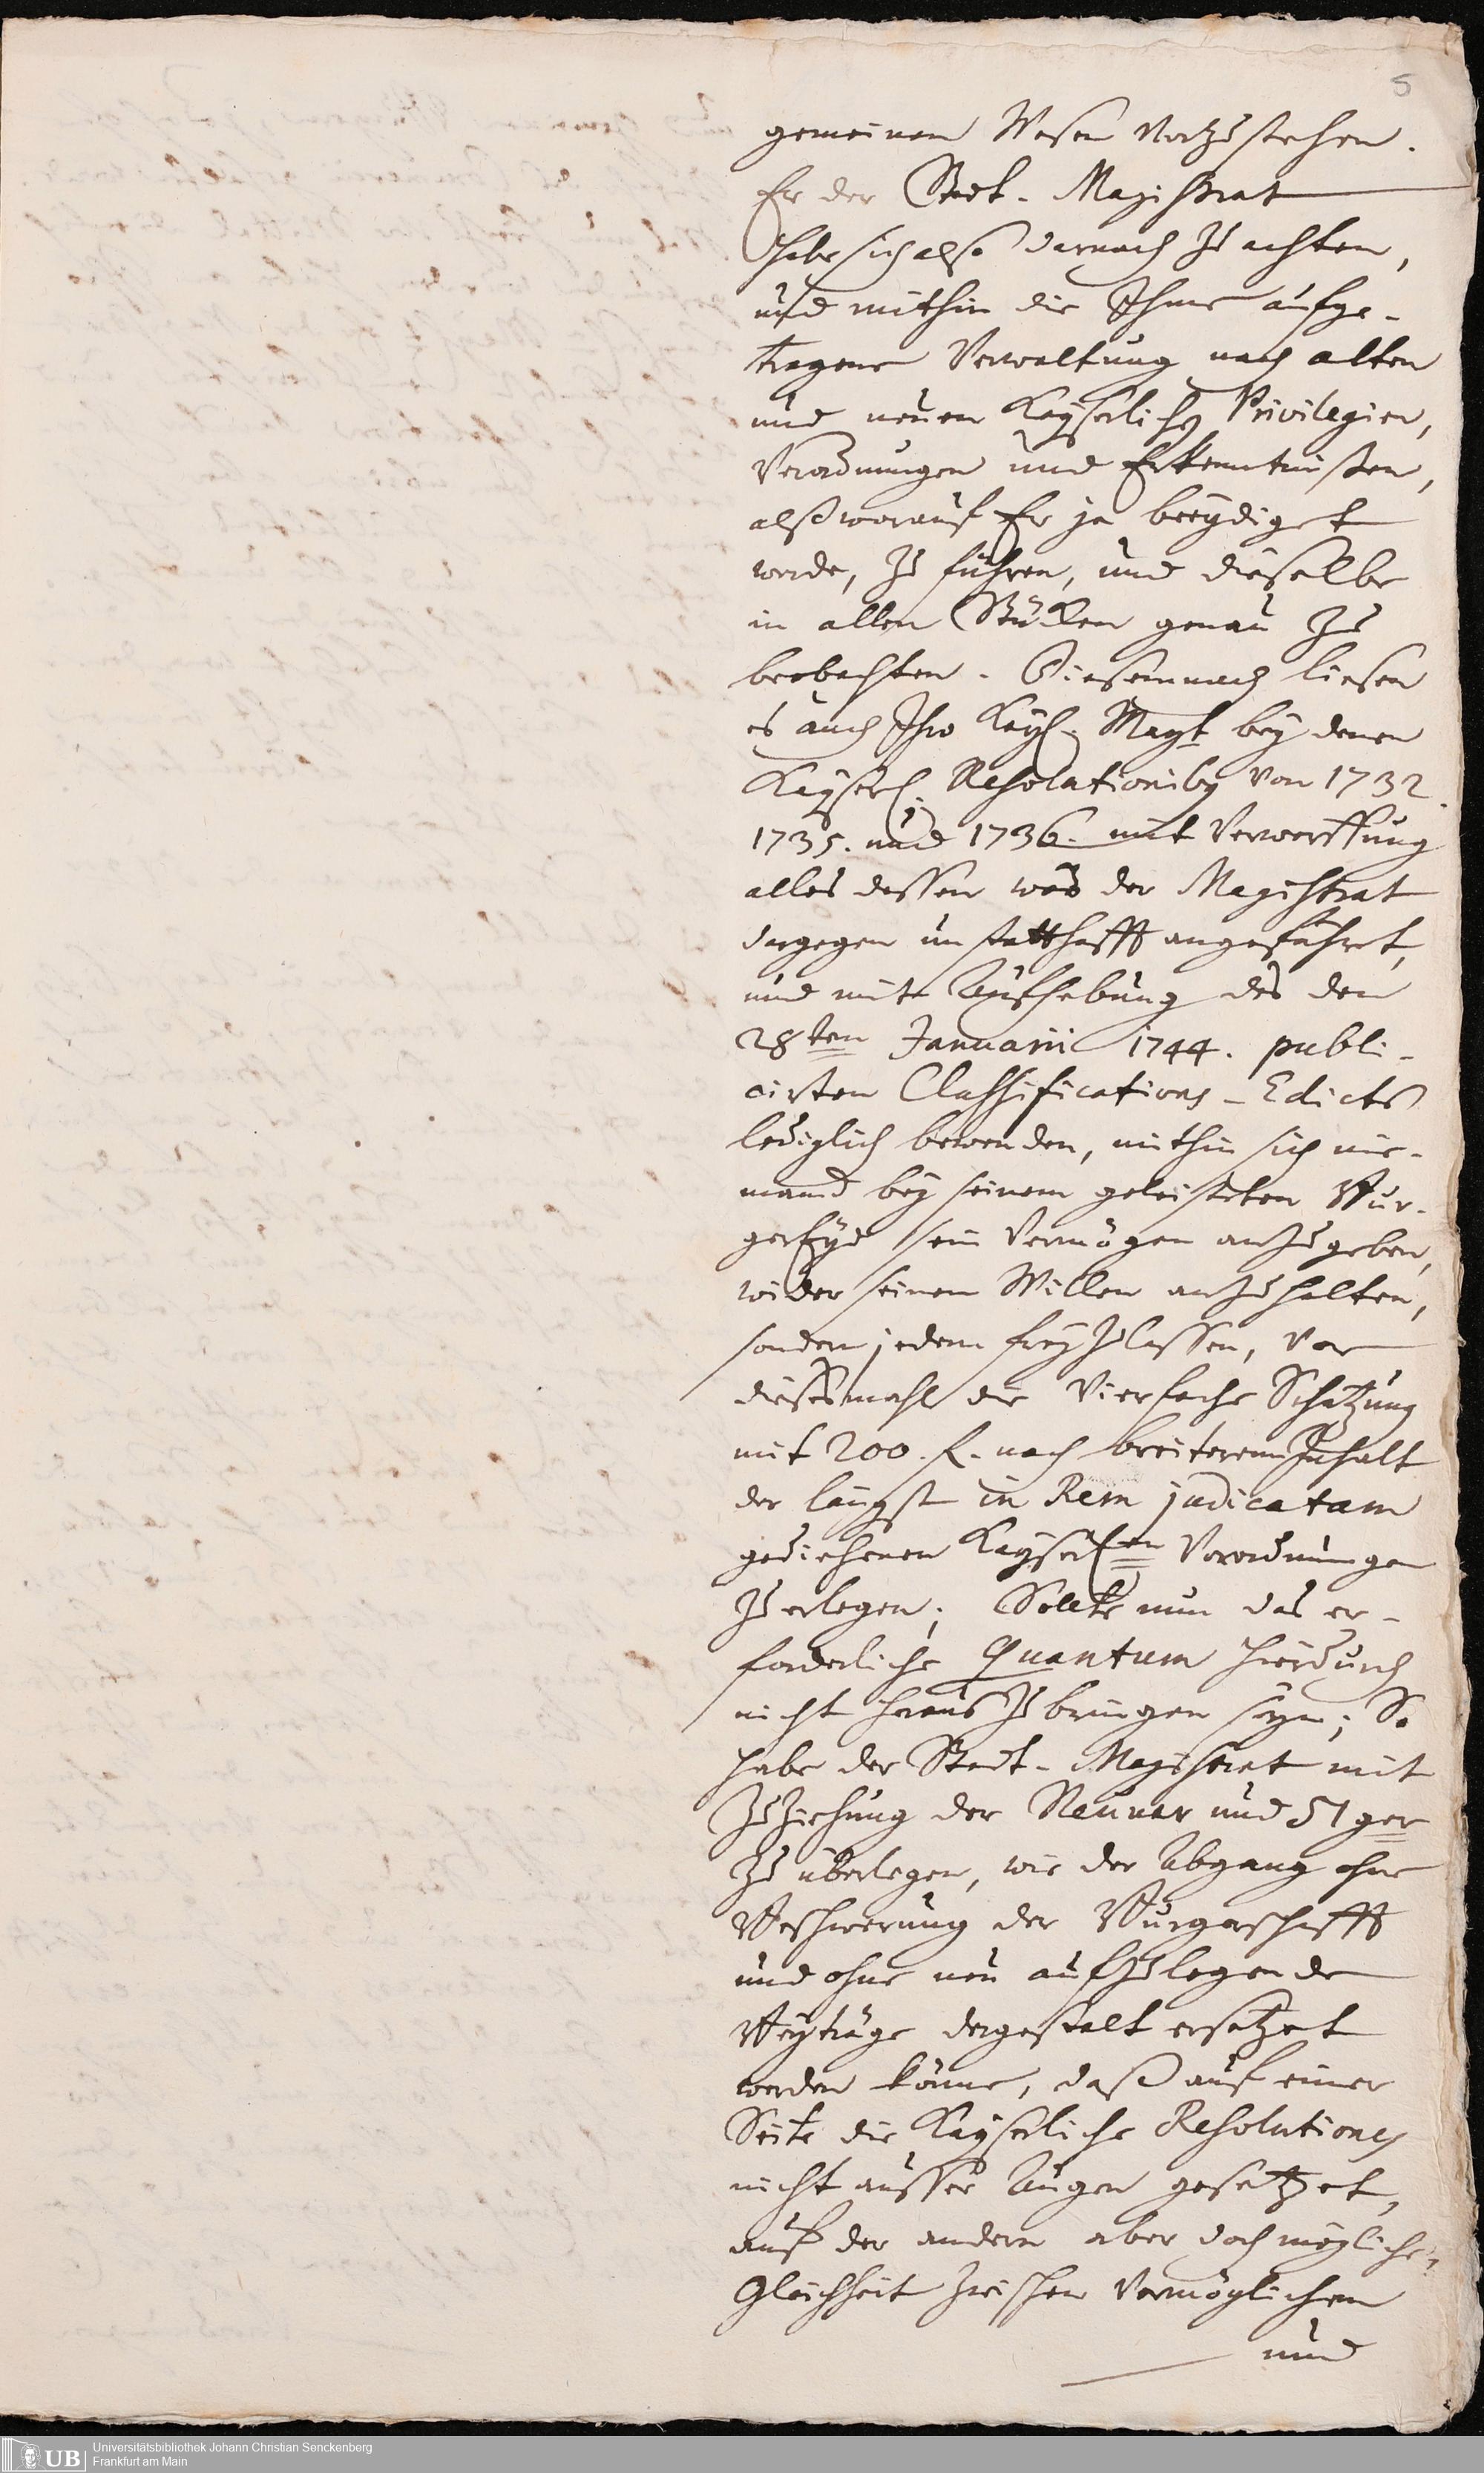 5
gemeinen Wesen vorzustehen.
Er der Stadt-Magistrat
habe sich also darnach zu achten,
und mithin die Ihme aufge-
tragene Verwaltung nach alten
und neuen Kayserlichen Privilegien,
Verordnungen und Erkenntnißen,
alß worauf Er ja beeydiget
werde, zu führen, und dieselbe
in allen Stücken genau zu
beobachten. Diesemnach liesen
es auch Ihro Kayl. Mayt bey denen
Kayserl. Resolutionibus von 1732.
1735. und 1736. mit Verwerffung
alles dessen was der Magistrat
dargegen unstatthafft angeführet,
und mit Aufhebung des den
28ten Januarii 1744. publi-
cirten Classifications-Edicts
lediglich bewenden, mithin sich nie-
mand bey seinem geleisteten Bur-
gerEyd sein Vermögen anzugeben,
wider seinen Willen anzuhalten,
sondern jedem frey zu lassen, vor
diesesmahl die vierfache Schatzung
mit 200. f. nach breiterem Inhalt
der längst in Rem judicatam
gediehenen Kayserlen Verordnungen
zu erlegen; Sollte nun das er-
forderliche Quantum hierdurch
nicht heraus zu bringen seyn; So
habe der Stadt-Magistrat mit
Zuziehung der Neuner und 51ger
zu überlegen, wie der Abgang ohne
Beschwerung der Burgerschafft
und ohne neu aufzulegende
Beyträge dergestalt ersetzet
werden könne, daß auf einer
Seite die Kayserliche Resolutiones
nicht ausser Augen gesetzet,
auf der andern aber doch mögliche
Gleichheit zwischen Vermöglichen
und
UB
Universitätsbibliothek Johann Christian Senckenberg
Frankfurt am Main